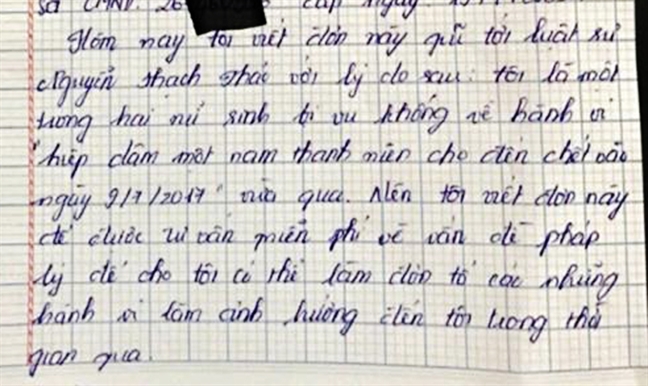 số CMND: 26 cấp ngày
Hôm nay tôi viết đơn này gửi tới luật sư
Nguyễn Thạch Thảo với lý do sau: tôi là một
trong hai nữ sinh bị vu khống về hành vi
"hiếp dâm một nam thanh niên cho đến chết vào
ngày 9/7/2017" vừa qua. Nên tôi viết đơn này
để được tư vấn miễn phí về vấn đề pháp
lý để cho tôi có thể làm đơn tố cáo những
hành vi làm ảnh hưởng đến tôi trong thời
gian qua.